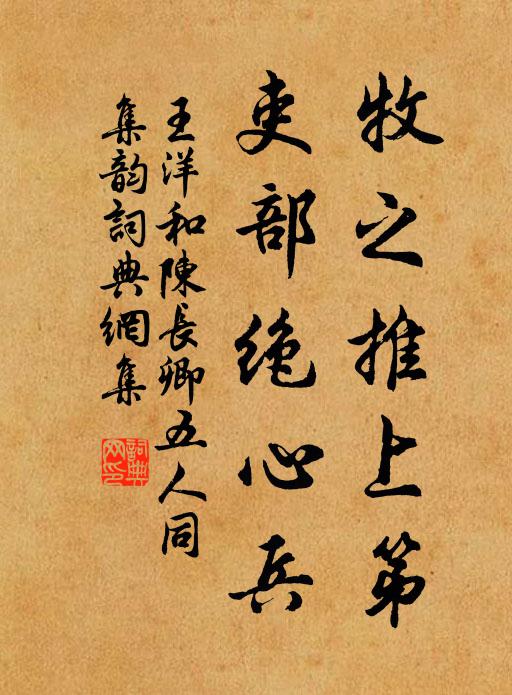 牧之推上第
吏部絶心兵
王洋和陳長卿五人同
集韵詞典網集
詞典网印